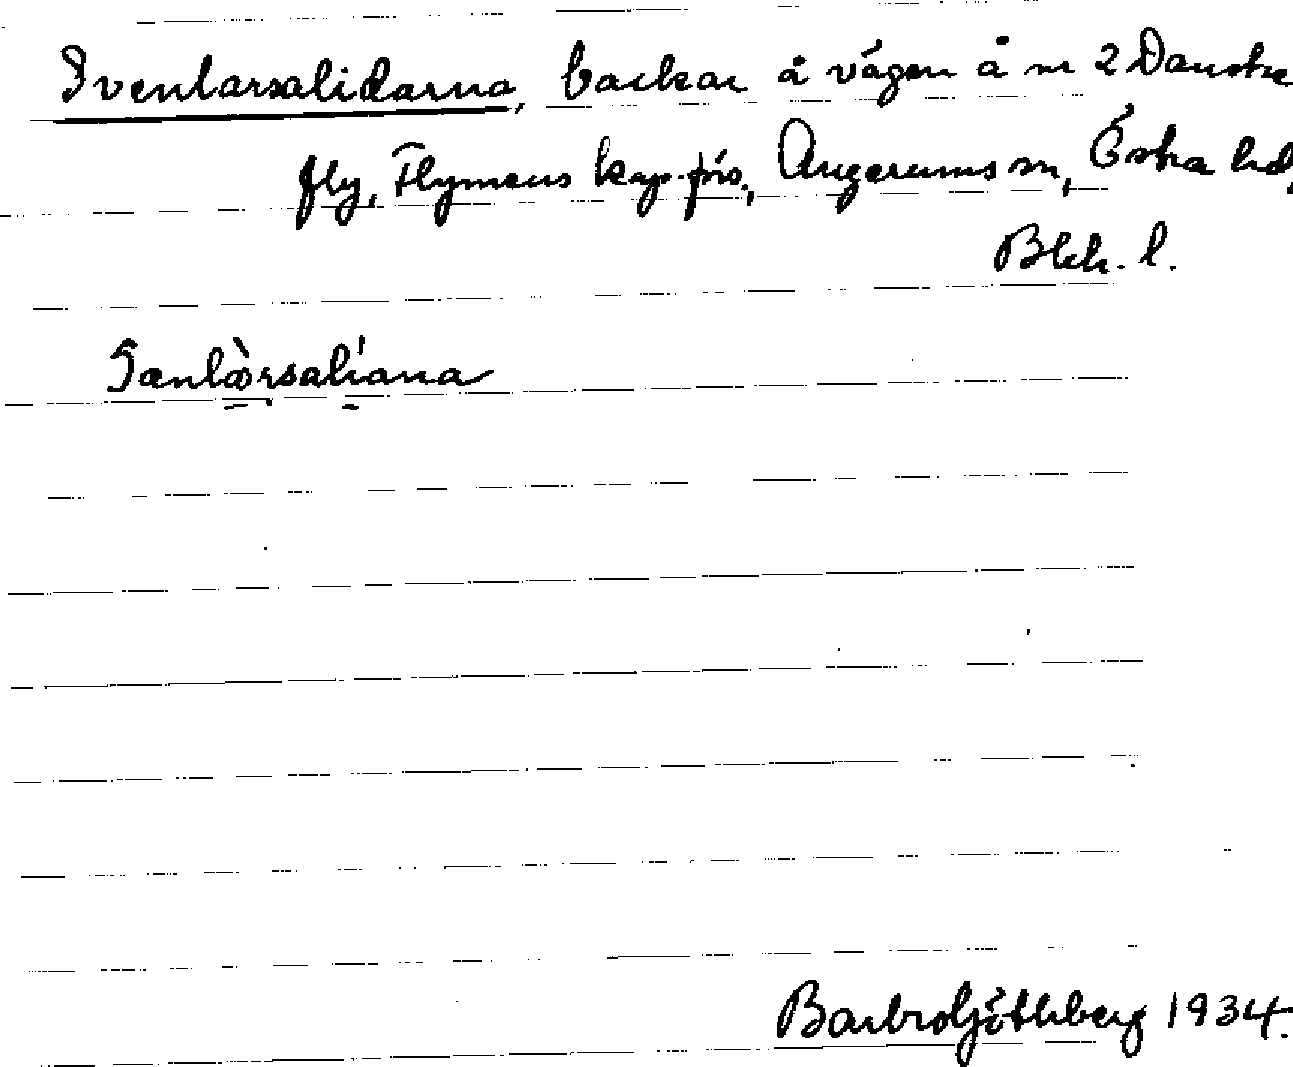 Sventarsalidarna, backar å vägen å nr 2 Danske
fly, Flymens kap.förs., Augerums sn, Östra hd,
Blek. l.
Sænlàrsalíana
Barbro Göthberg 1934.